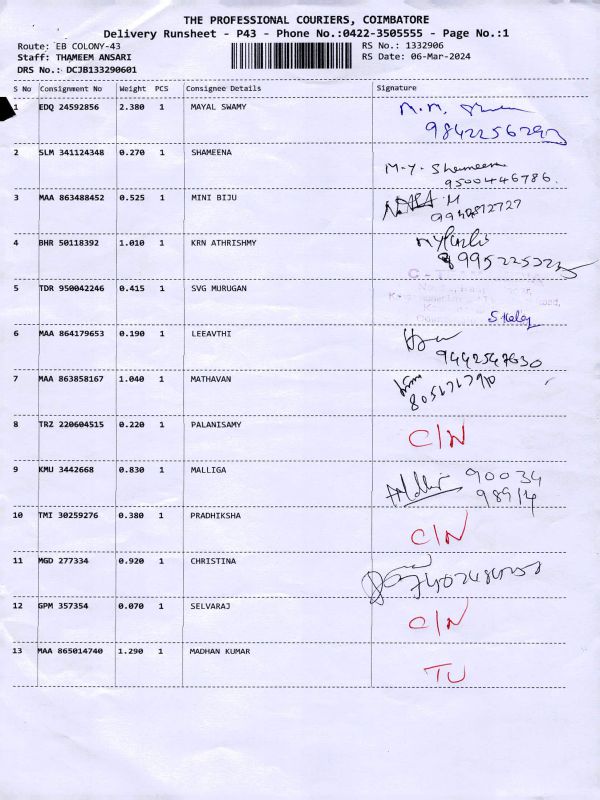 THE PROFESSIONAL COURIERS, COIMBATORE
Delivery Runsheet - P43 - Phone No.:0422-3505555 - Page No.:1
Route: EB COLONY-43 RS No.: 1332906
Staff: THAMEEM ANSARI RS Date: 06-Mar-2024
DRS No.: DCJB133290601
S No Consignment No Weight PCS Consignee Details Signature
1 EDQ 24592856 2.380 1 MAYAL SWAMY
2 SLM 341124348 0.270 1 SHAMEENA M.Y. Shameena
9500446786.
3 MAA 863488452 0.525 1 MINI BIJU
4 BHR 50118392 1.010 1 KRN ATHRISHMY
5 TDR 950042246 0.415 1 SVG MURUGAN
6 MAA 864179653 0.190 1 LEEAVTHI
9442547630
7 MAA 863858167 1.040 1 MATHAVAN
8 TRZ 220604515 0.220 1 PALANISAMY C/N
9 KMU 3442668 0.830 1 MALLIGA 90034
98914
10 TMI 30259276 0.380 1 PRADHIKSHA C/N
11 MGD 277334 0.920 1 CHRISTINA
12 GPM 357354 0.070 1 SELVARAJ C/N
13 MAA 865014740 1.290 1 MADHAN KUMAR TU